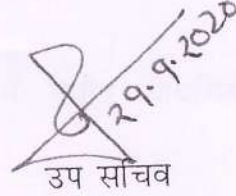 29.9.2020
उप सचिव